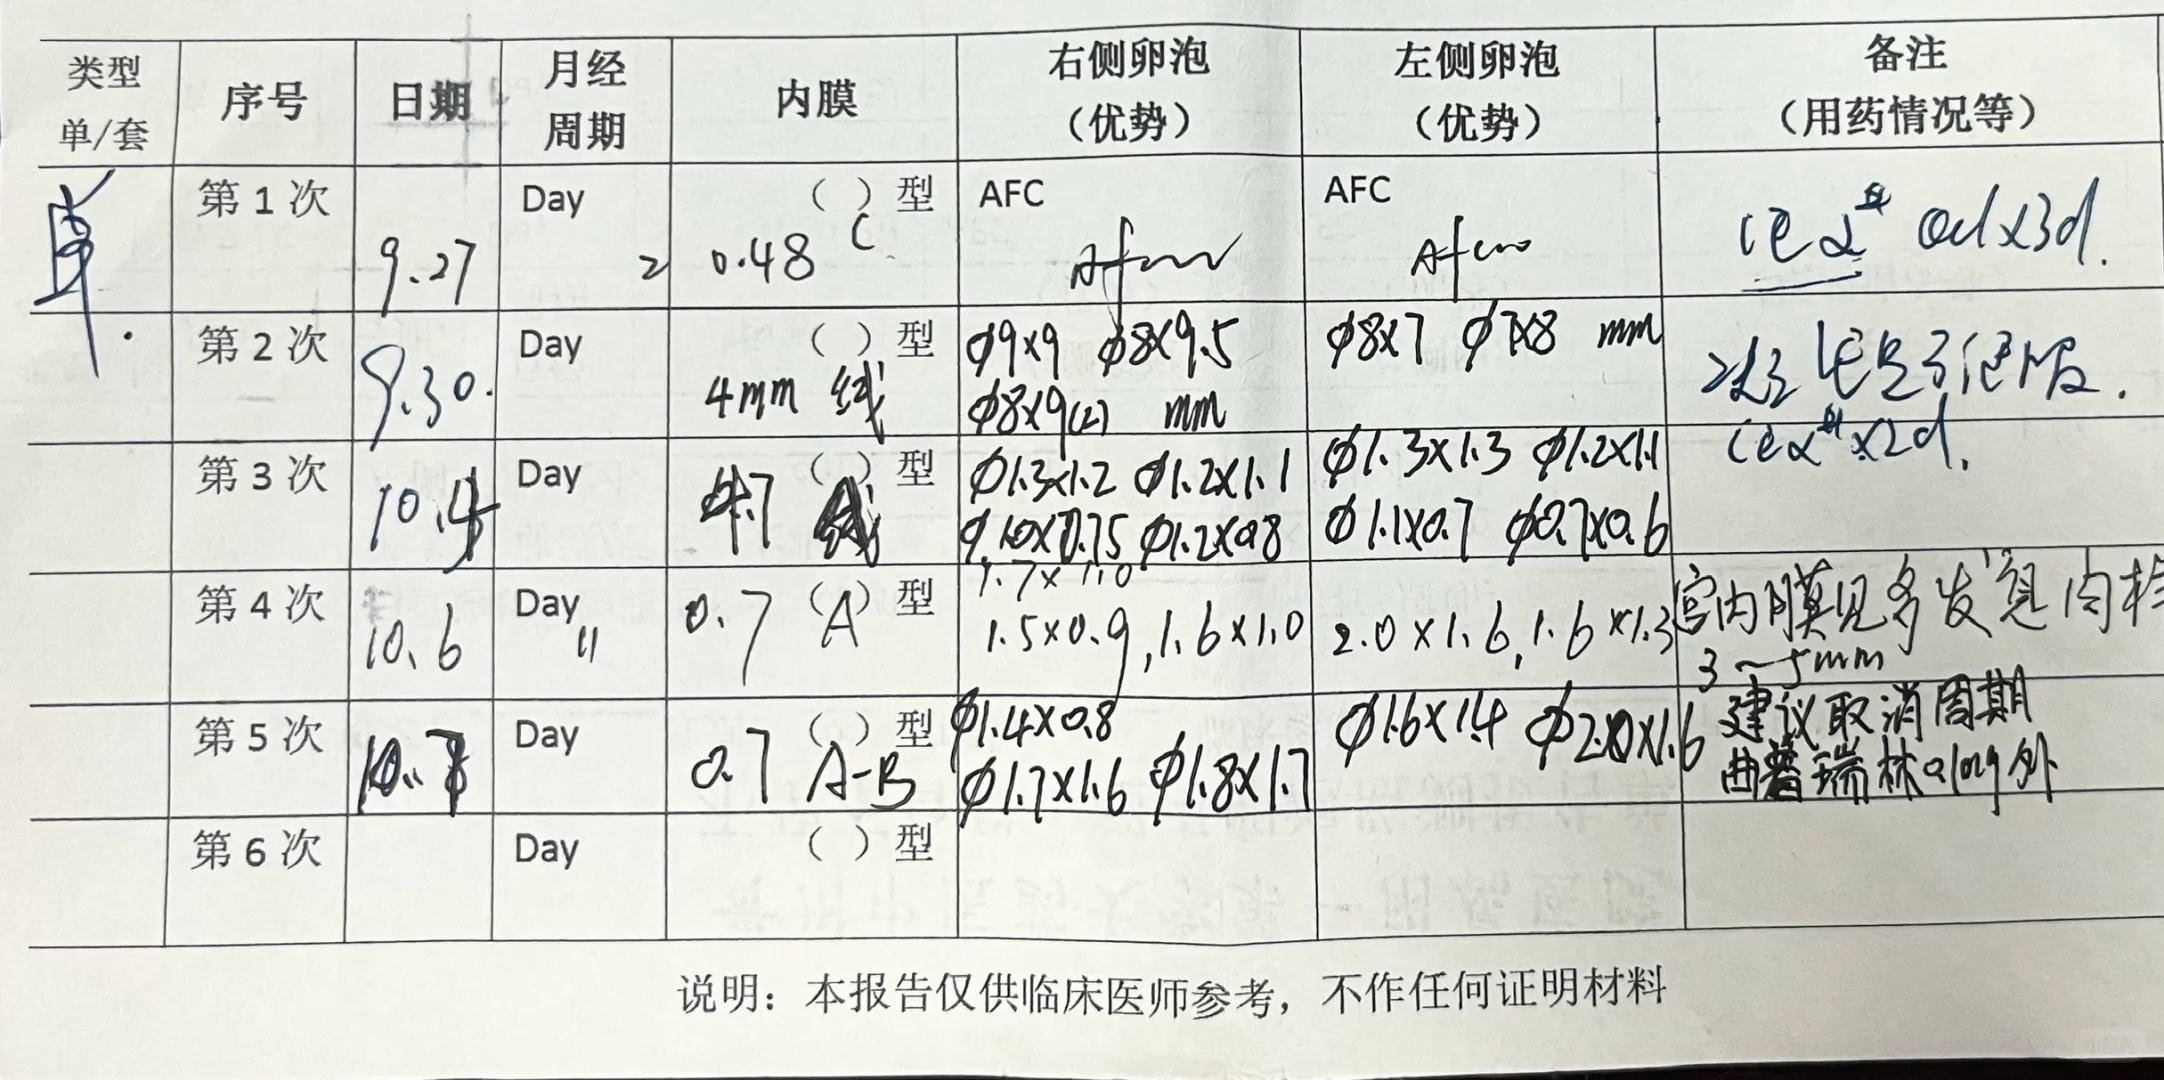 类型 单/套 序号 日期 月经周期 内膜 右侧卵泡（优势） 左侧卵泡（优势） 备注（用药情况等）
单. 第1次 9.27 Day 2 0.48（ ）型 C AFC AFC od x3d.
第2次 9.30. Day （ ）型 4mm 线 φ9x9 φ8x9.5 φ8x9(2) mm φ8x7 φ7x8 mm x2d.
第3次 10.4 Day （ ）型 φ1.3x1.2 φ1.2x1.1 φ1.2x0.8 φ1.3x1.3 φ1.2x1.1 φ1.1x0.7 φ0.7x0.6
第4次 10.6 Day 11 0.7（A）型 1.7x1.0 1.5x0.9, 1.6x1.0 2.0x1.6, 1.6x1.3 宫内膜见多发息肉样 3~5mm
第5次 Day 0.7（ ）型 A-B φ1.4x0.8 φ1.7x1.6 φ1.8x1.7 φ1.6x1.4 φ2.0x1.6 建议取消周期 曲普瑞林0.1mg
第6次 Day （ ）型
说明：本报告仅供临床医师参考，不作任何证明材料